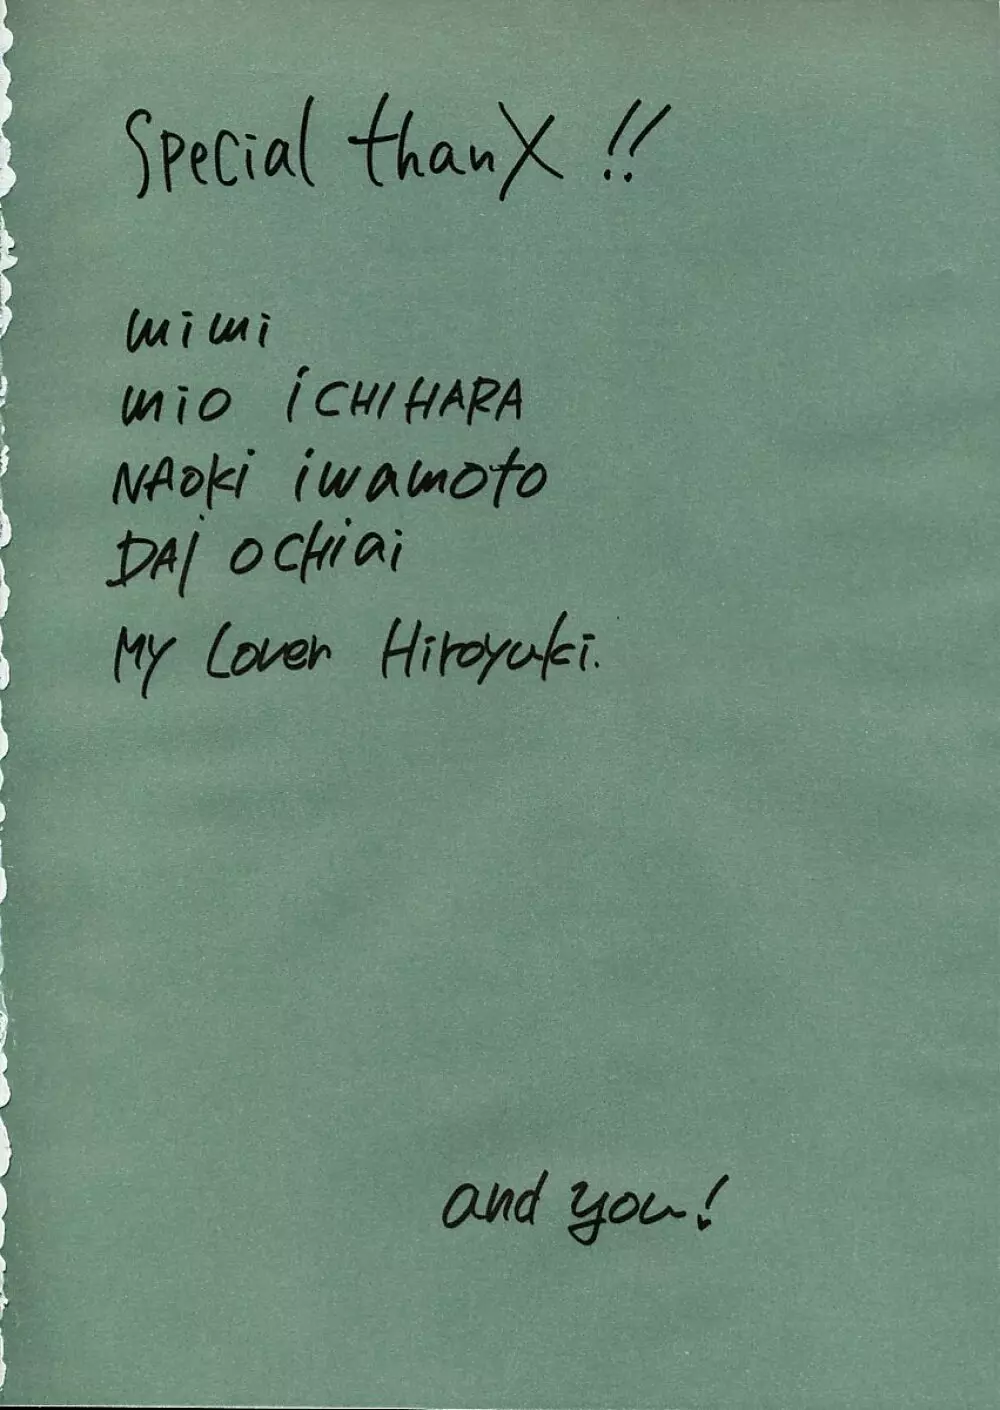 Special thanX !!
mimi
mio iCHIHARA
NAoki iwamoto
DAi OCHiai
My Lover Hiroyuki.
and you!